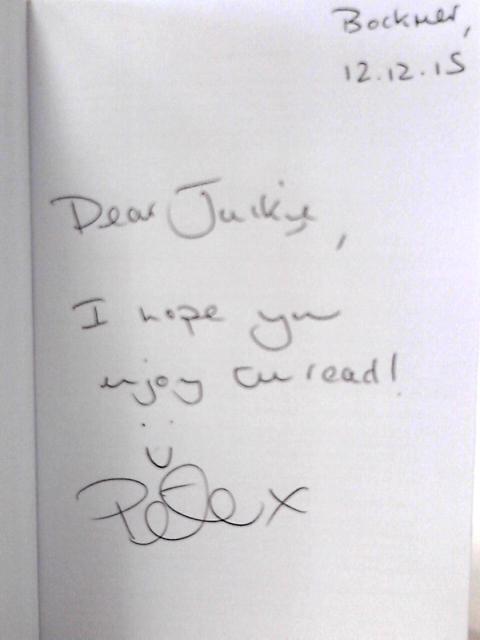 Bockmer,
12.12.15
Dear Juckie,
I hope you
enjoy the read!
Pete x